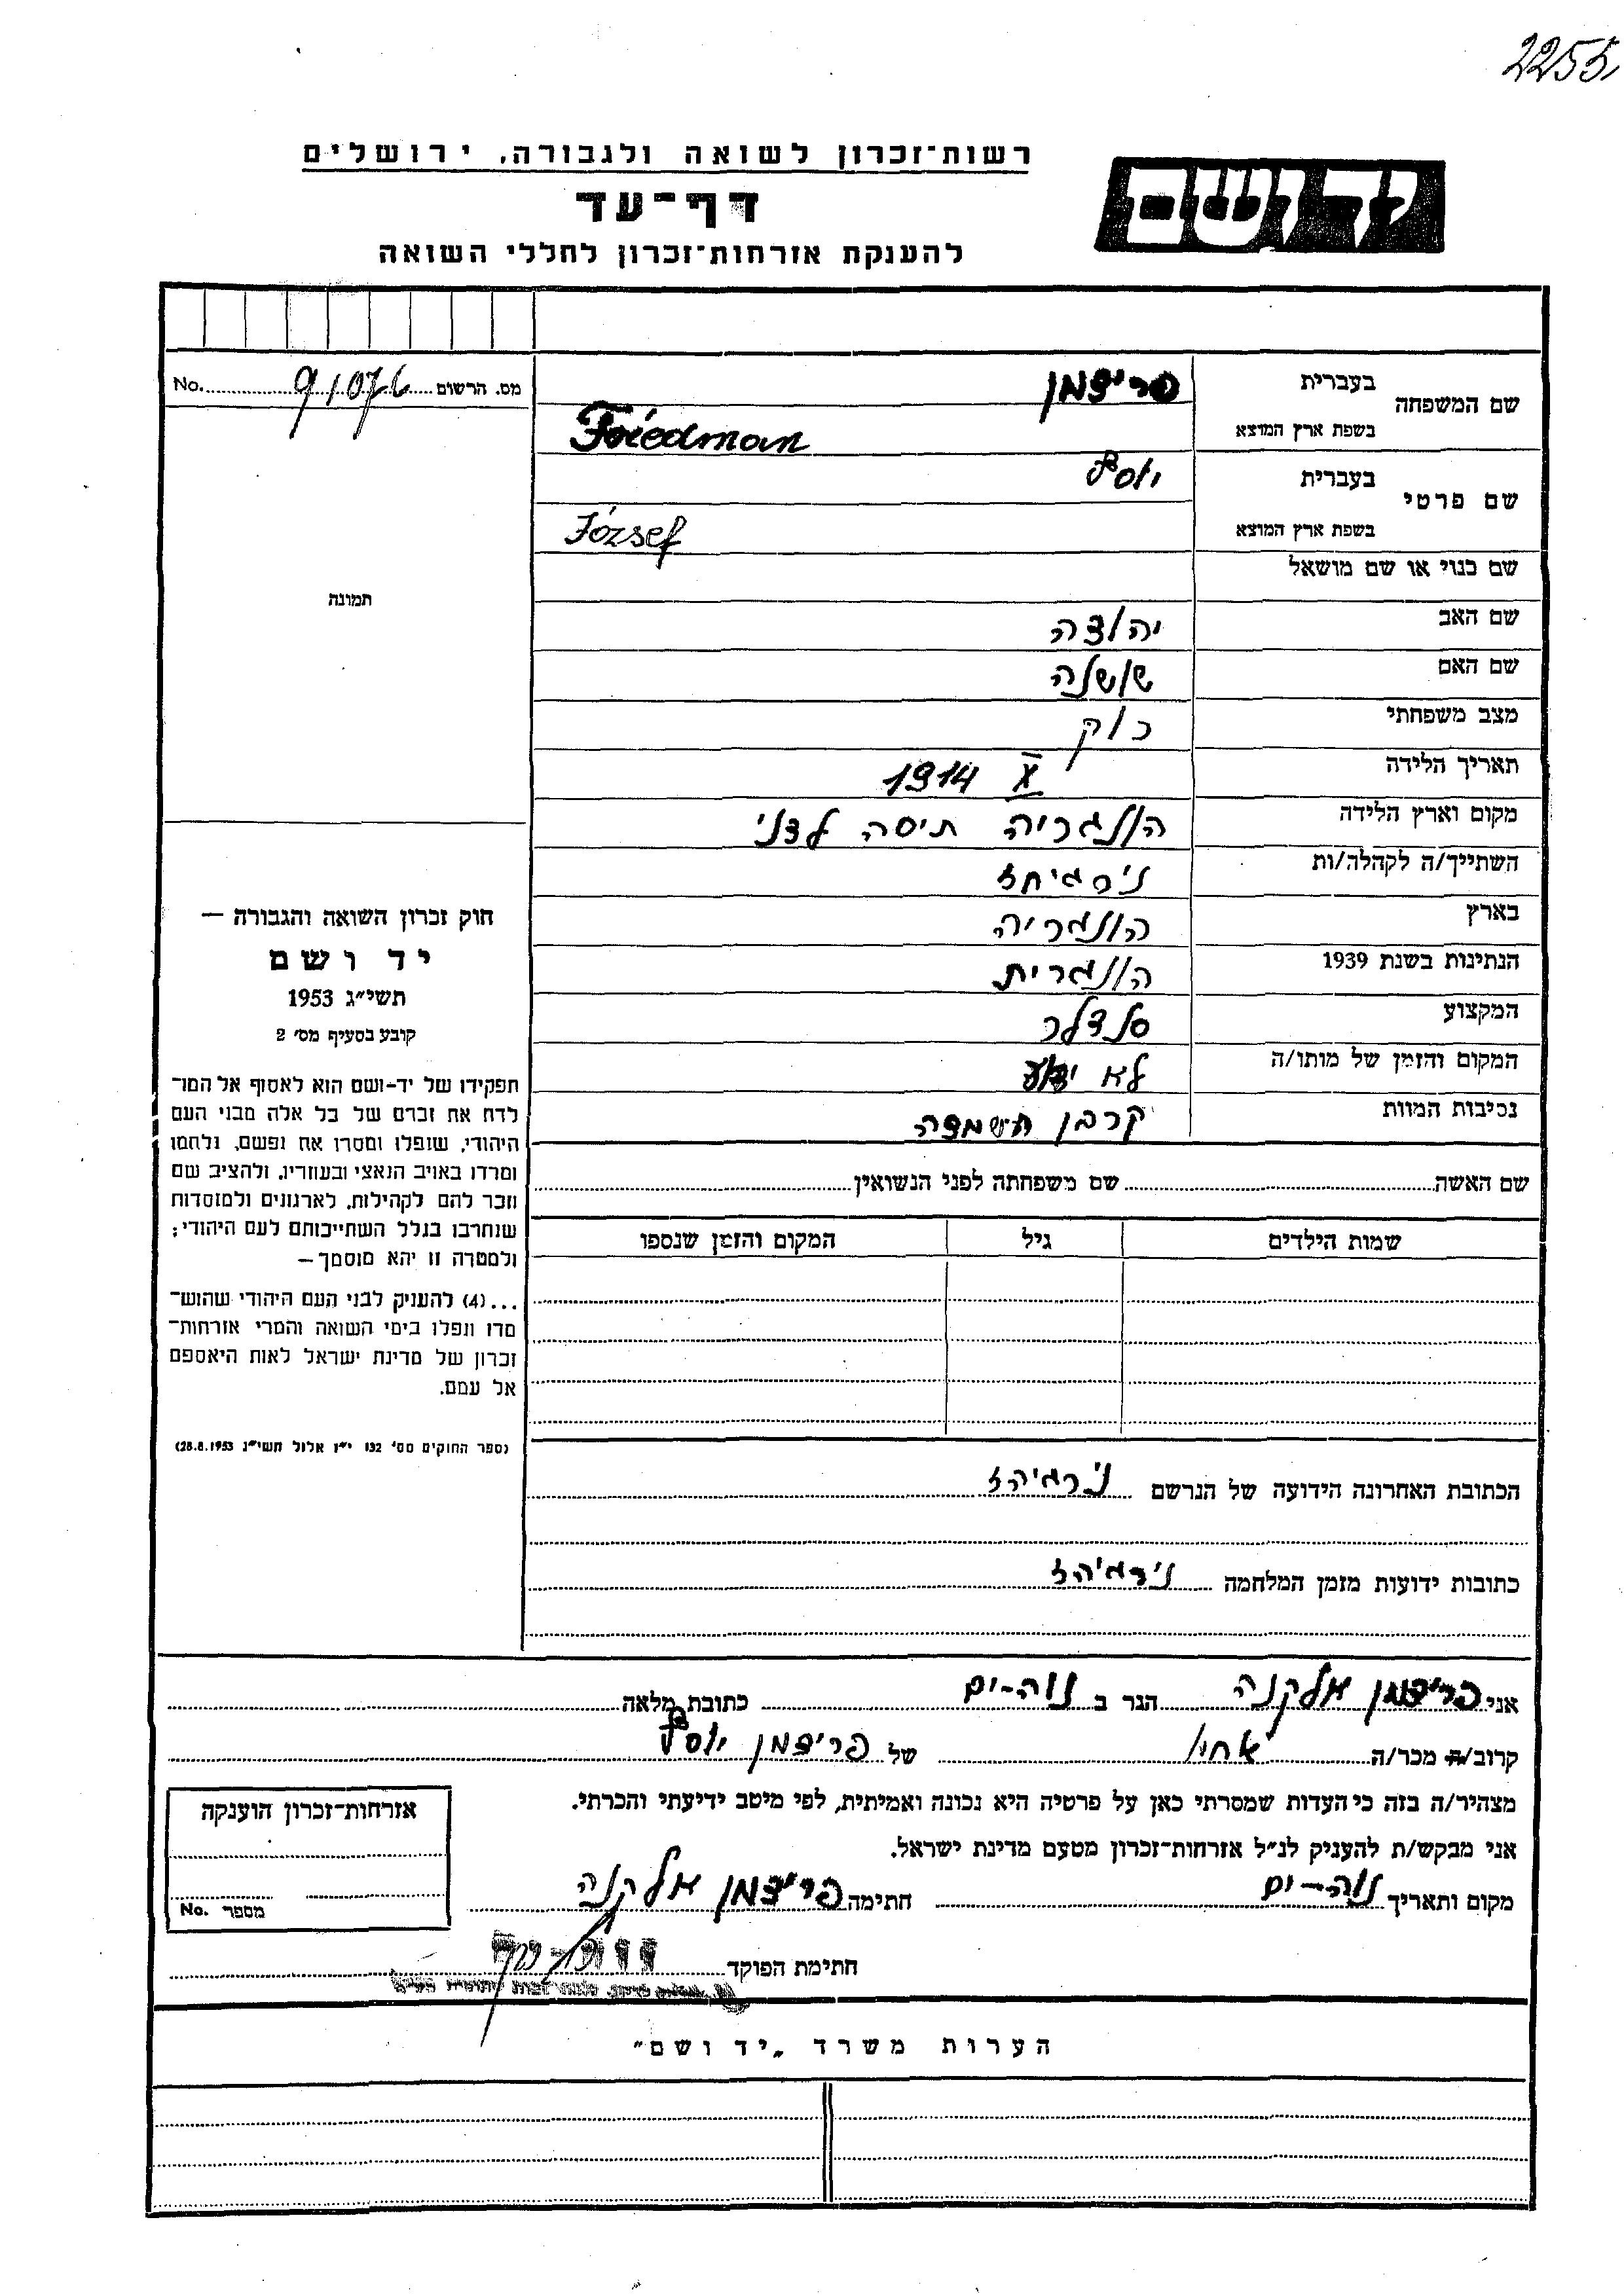 2255
רשות־זכרון לשואה ולגבורה, ירושלים
יד ושם
דף־עד
להענקת אזרחות־זכרון לחללי השואה
מס. הרשום 91076 No.
שם המשפחה
בעברית פרידמן
בשפת ארץ המוצא Friedman
שם פרטי
בעברית יוסף
בשפת ארץ המוצא József
שם כנוי או שם מושאל
שם האב יהודה
שם האם שושנה
מצב משפחתי רווק
תאריך הלידה X 1914
מקום וארץ הלידה הונגריה תיסה לדני
השתייך/ה לקהלה/ות
בארץ הונגריה
הנתינות בשנת 1939 הונגרית
המקצוע סנדלר
המקום והזמן של מותו/ה לא ידוע
נסיבות המוות קרבן השמדה
תמונה
חוק זכרון השואה והגבורה —
יד ושם
תשי״ג 1953
קובע בסעיף מס׳ 2
תפקידו של יד-ושם הוא לאסוף אל המו־
לדת את זכרם של כל אלה מבני העם
היהודי, שנפלו ומסרו את נפשם, נלחמו
ומרדו באויב הנאצי ובעוזריו, ולהציב שם
וזכר להם לקהילות, לארגונים ולמוסדות
שנחרבו בגלל השתייכותם לעם היהודי;
ולמטרה זו יהא מוסמך—
...(4) להעניק לבני העם היהודי שהוש־
מדו ונפלו בימי השואה והמרי אזרחות־
זכרון של מדינת ישראל לאות היאספם
אל עמם.
(ספר החוקים מס׳ 132 י״ז אלול תשי״ג 28.8.1953)
שם האשה שם משפחתה לפני הנשואין
שמות הילדים גיל המקום והזמן שנספו
הכתובת האחרונה הידועה של הנרשם נירגיהז
כתובות ידועות מזמן המלחמה נירגיהז
אני פרידמן אלקנה הגר ב נוה-ים כתובת מלאה
קרוב/ה מכר/ה אחיו של פרידמן יוסף
מצהיר/ה בזה כי העדות שמסרתי כאן על פרטיה היא נכונה ואמיתית, לפי מיטב ידיעתי והכרתי.
אני מבקש/ת להעניק לנ״ל אזרחות־זכרון מטעם מדינת ישראל.
מקום ותאריך נוה-ים חתימה פרידמן אלקנה
חתימת הפוקד
אזרחות־זכרון הוענקה
מספר No.
הערות משרד „יד ושם״